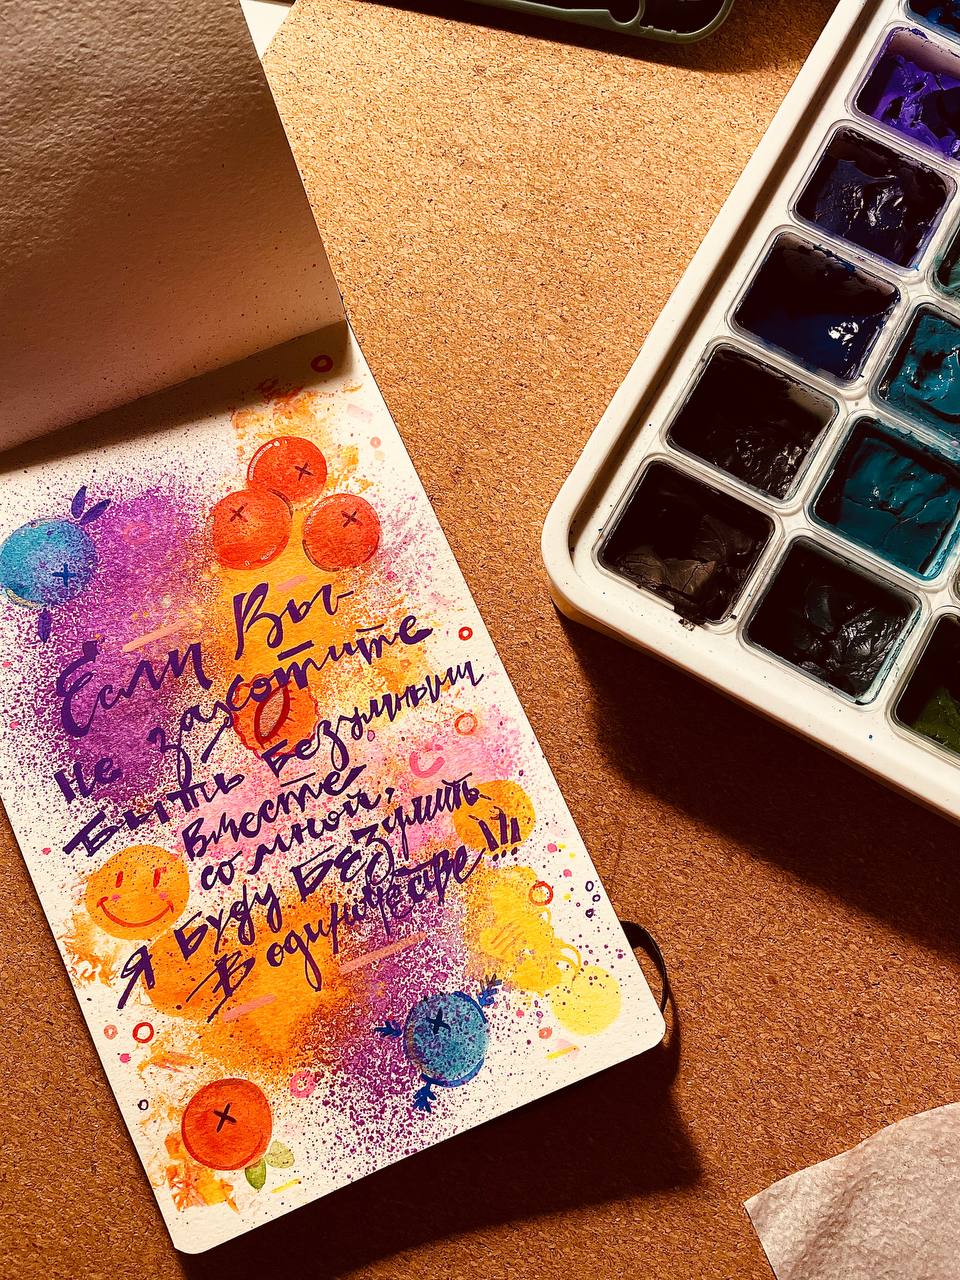 Если Вы
не захотите
Быть Безумным
вместе
со мной,
я Буду БЕЗумить
В одиночестве!!!